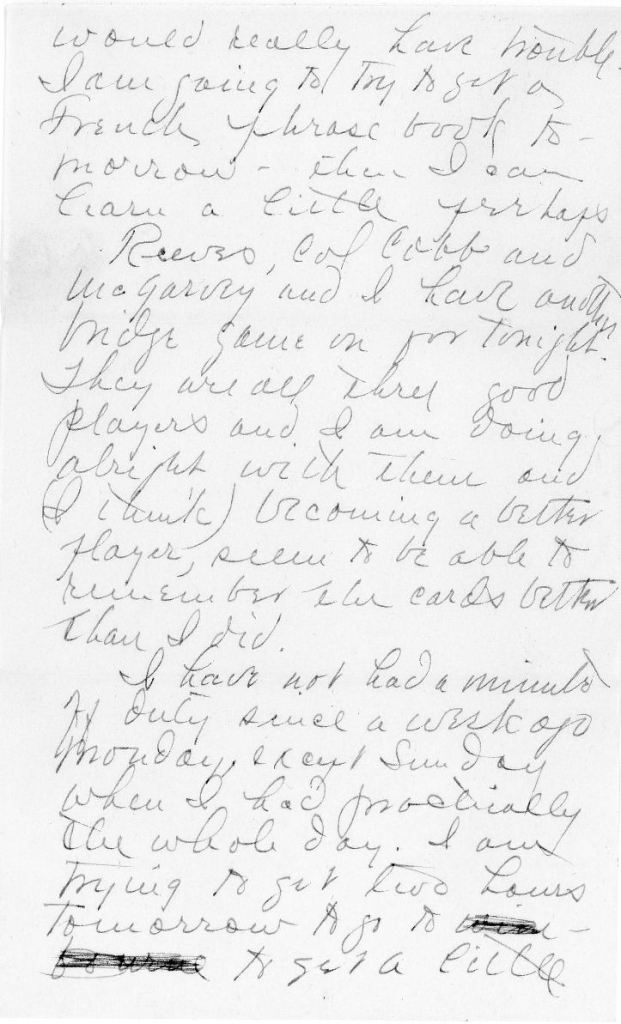 would really have trouble.
I am going to try to get a
French phrase book to-
morrow - then I can
learn a little perhaps
Reeves, Col Cobb and
McGarvey and I have another
bridge game on for tonight.
They are all three good
players and I am doing
alright with them and
(I think) becoming a better
player, seem to be able to
remember the cards better
than I did.
I have not had a minute
of duty since a week ago
Monday, except Sunday
when I had practically
the whole day. I am
trying to get two hours
tomorrow to go to
to get a little